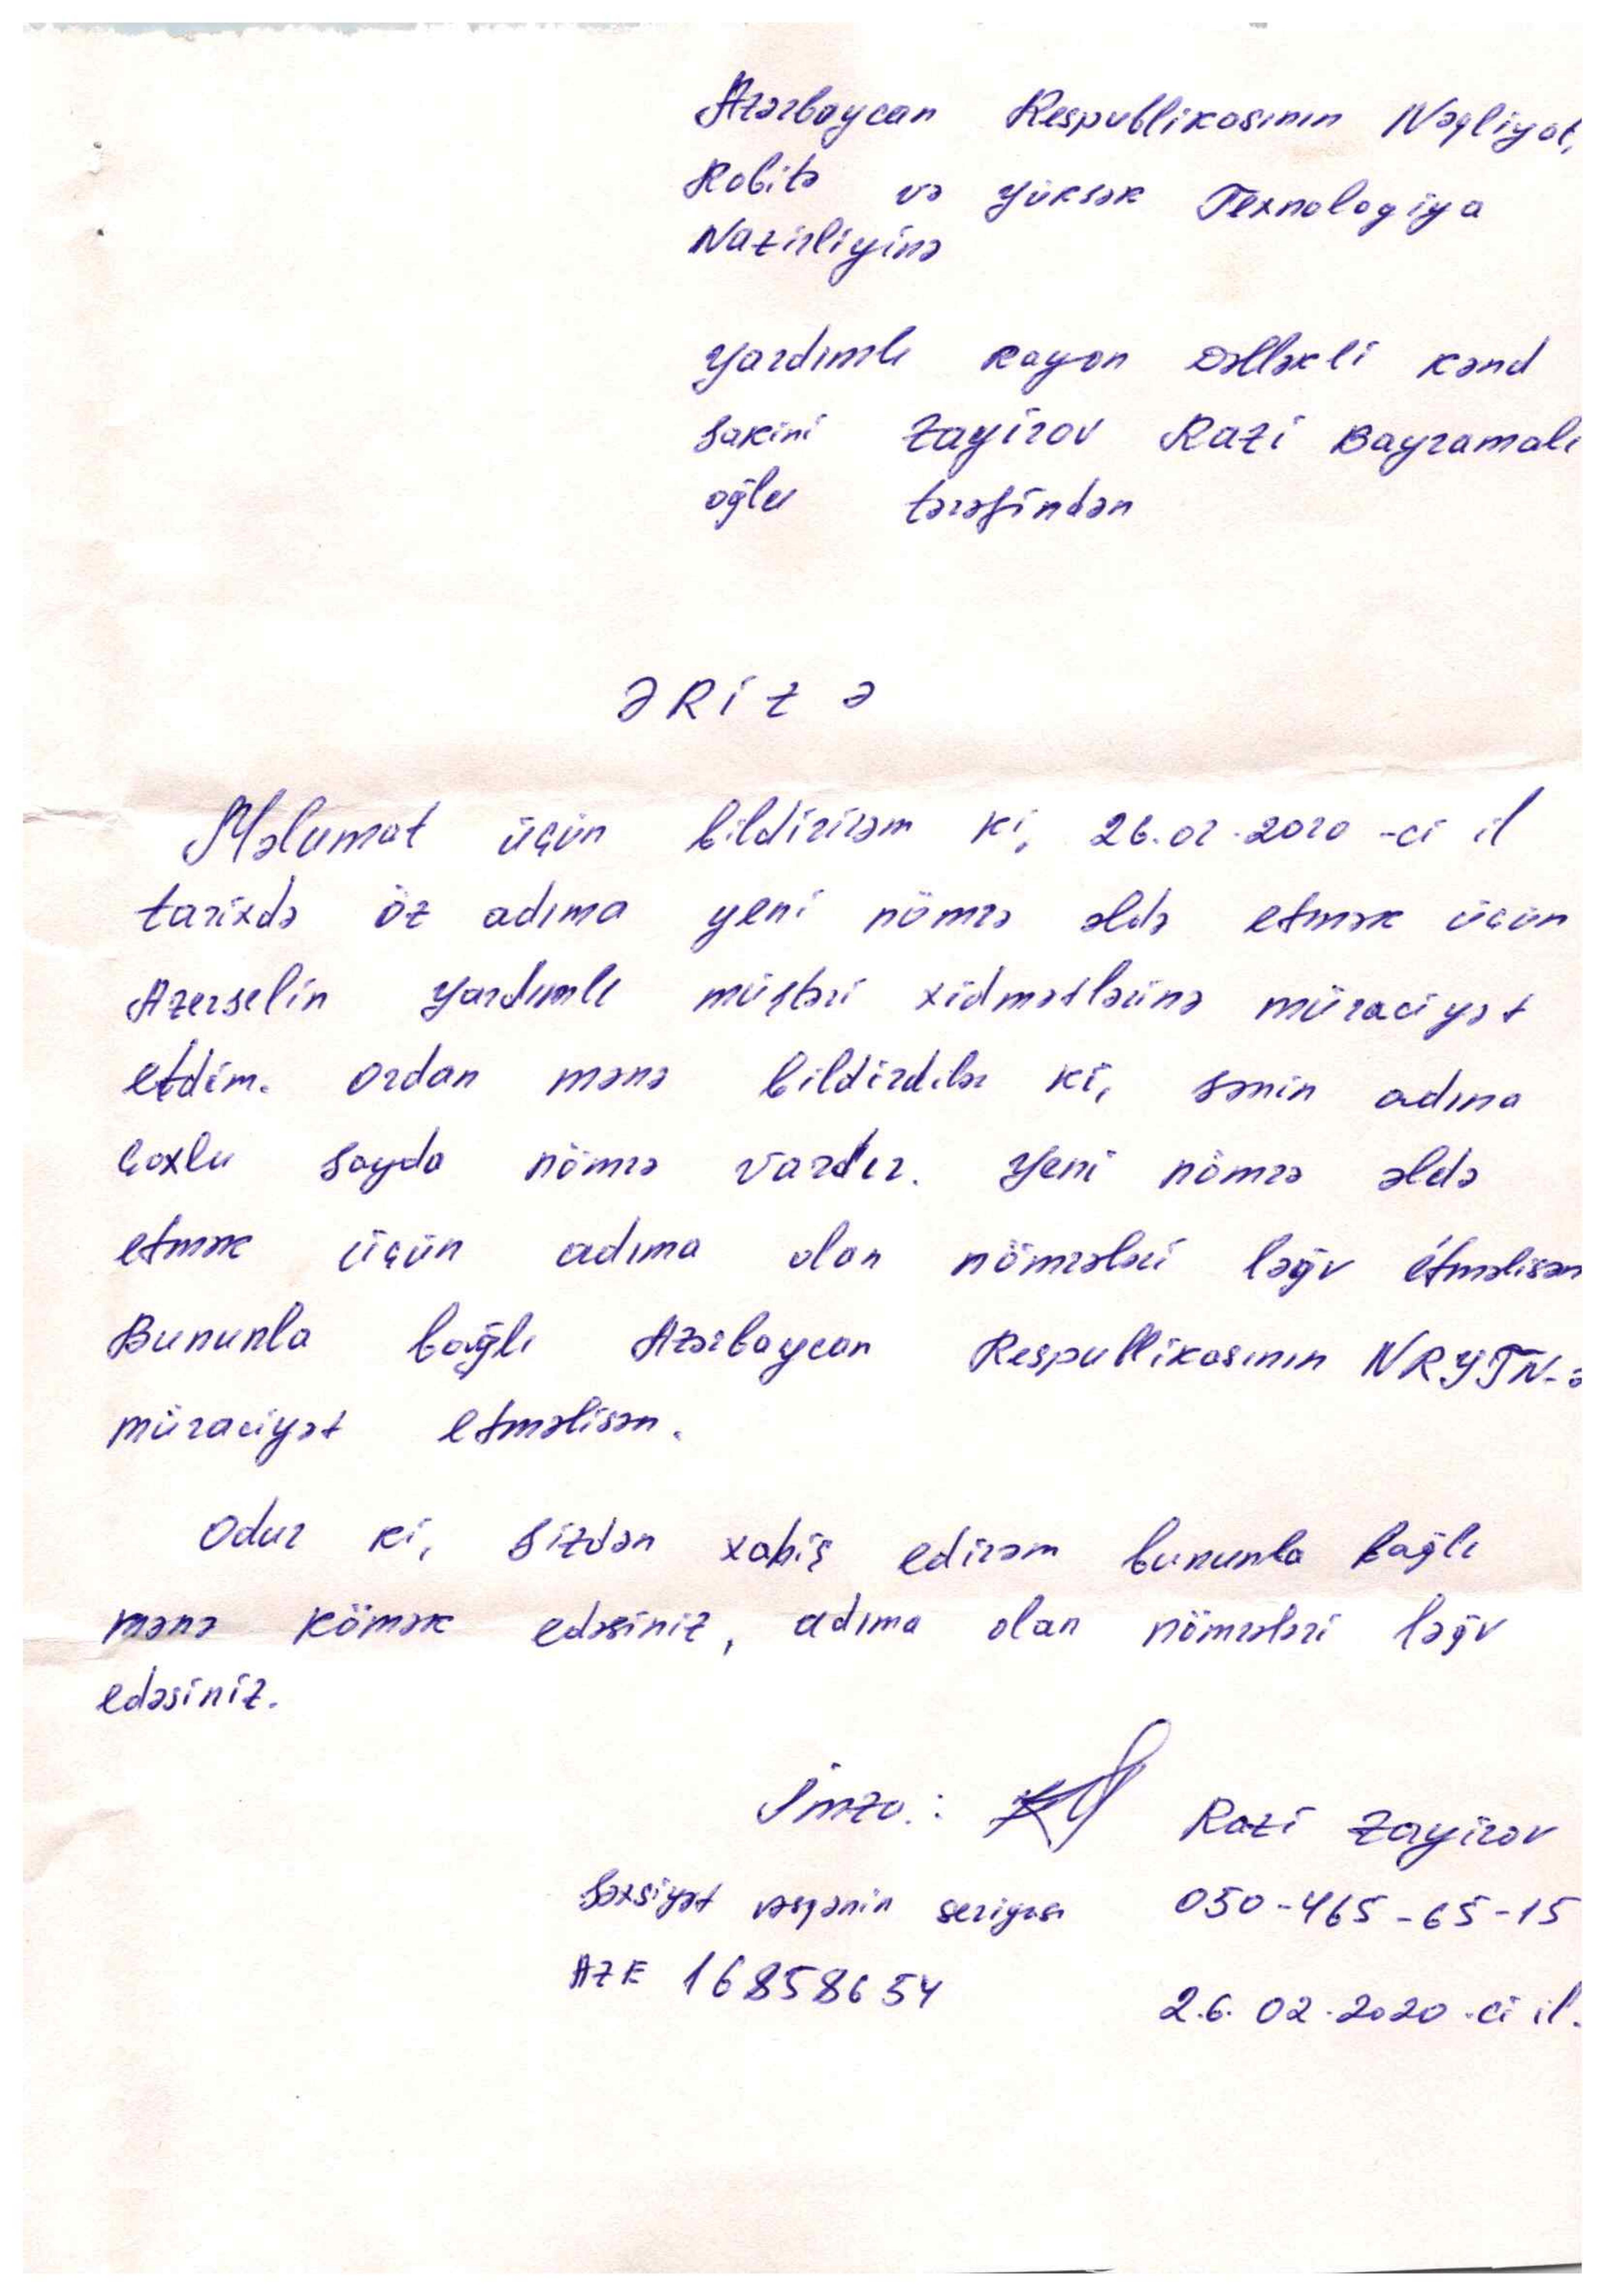 Azərbaycan Respublikasının Nəqliyat,
Rabitə və yüksək Texnologiya
Nazirliyinə
Yardımlı Rayon Dəlləkli kənd
sakini Zayirov Razi Bayramalı
oğlu tərəfindən
ƏRİZƏ
Məlumat üçün bildirirəm ki, 26.02.2020-ci il
tarixdə öz adıma yeni nömrə əldə etmək üçün
Azerselin Yardımlı müştəri xidmətlərinə müraciyət
etdim. Ordan mənə bildirdilər ki, sənin adına
çoxlu sayda nömrə vardır. Yeni nömrə əldə
etmək üçün adıma olan nömrələri ləğv etməlisən
Bununla bağlı Azərbaycan Respublikasının NRYTN-ə
müraciyət etməlisən.
Odur ki, Sizdən xahiş edirəm bununla bağlı
mənə kömək edəsiniz, adıma olan nömrələri ləğv
edəsiniz.
İmza: Razi Zayirov
Şəxsiyət vəsqənin seriyası 050-465-65-15
AZE 16858654
26.02.2020-ci il.